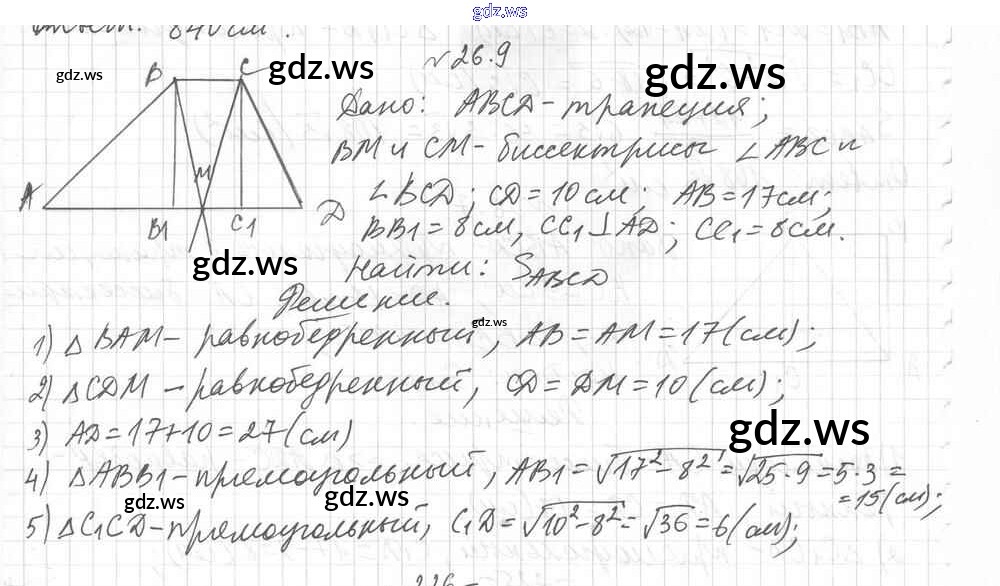 gdz.ws
840 см².
N26.9
B C gdz.ws gdz.ws
gdz.ws
Дано: ABCD - трапеция;
BM и CM - биссектрисы ∠ABC и
M
A B1 C1 D
∠BCD; CD = 10 см; AB = 17 см;
BB1 = 8 см, CC1 ⊥ AD; CC1 = 8 см.
gdz.ws
Найти: SABCD
Решение.
gdz.ws
1) △BAM - равнобедренный, AB = AM = 17 (см);
2) △CDM - равнобедренный, CD = DM = 10 (см);
3) AD = 17 + 10 = 27 (см)
gdz.ws
4) △ABB1 - прямоугольный, AB1 = √17² - 8² = √25 · 9 = 5 · 3 =
= 15 (см);
gdz.ws gdz.ws
5) △C1CD - прямоугольный, C1D = √10² - 8² = √36 = 6 (см);